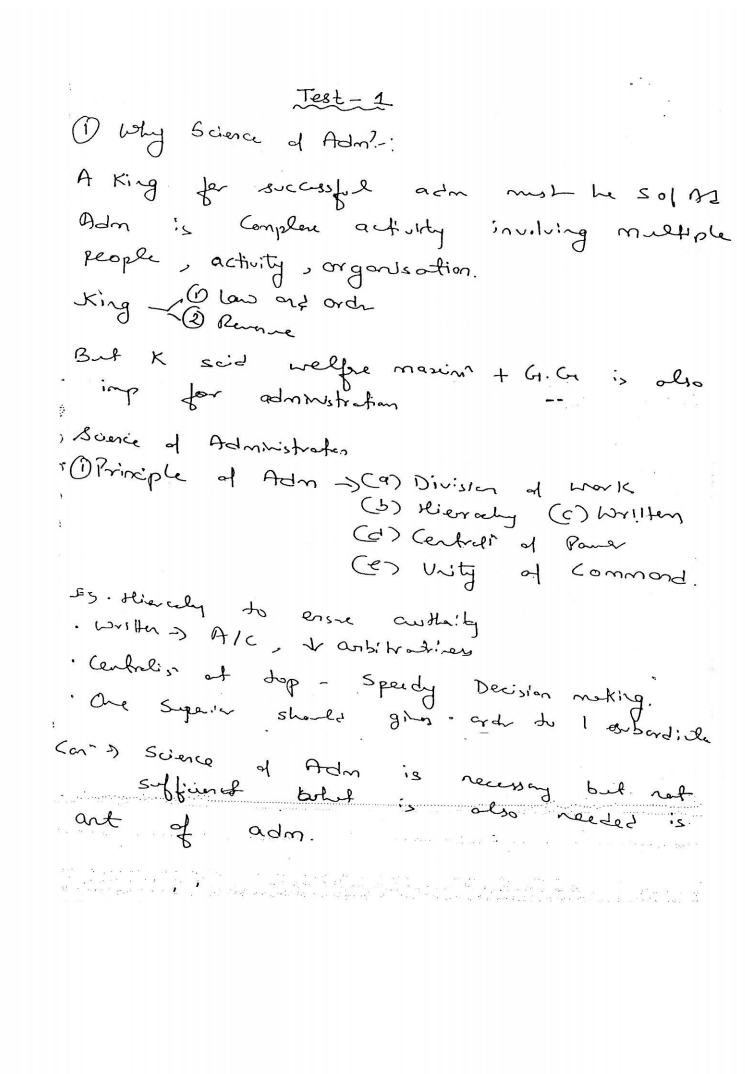 Test - 1
① Why Science of Admⁿ :-
A King for successful adm must be S of A
Adm is Complex activity involving multiple
people , activity , organisation.
King ① Law and ordr
② Revenue
But K said welfre maximⁿ + G.G is also
imp for administration
Science of Administration
① Principle of Adm → (a) Division of work
(b) Hierarchy (c) Written
(d) Centralⁿ of Power
(e) Unity of Command.
Eg. Hierarchy to ensure authority
· Written ⇒ A/C , ↓ arbitrariness
· Centralisⁿ at top - Speedy Decision making.
· One Superior should give order to 1 subordinate
Conⁿ ⇒ Science of Adm is necessary but not
sufficient what is also needed is
art of adm.